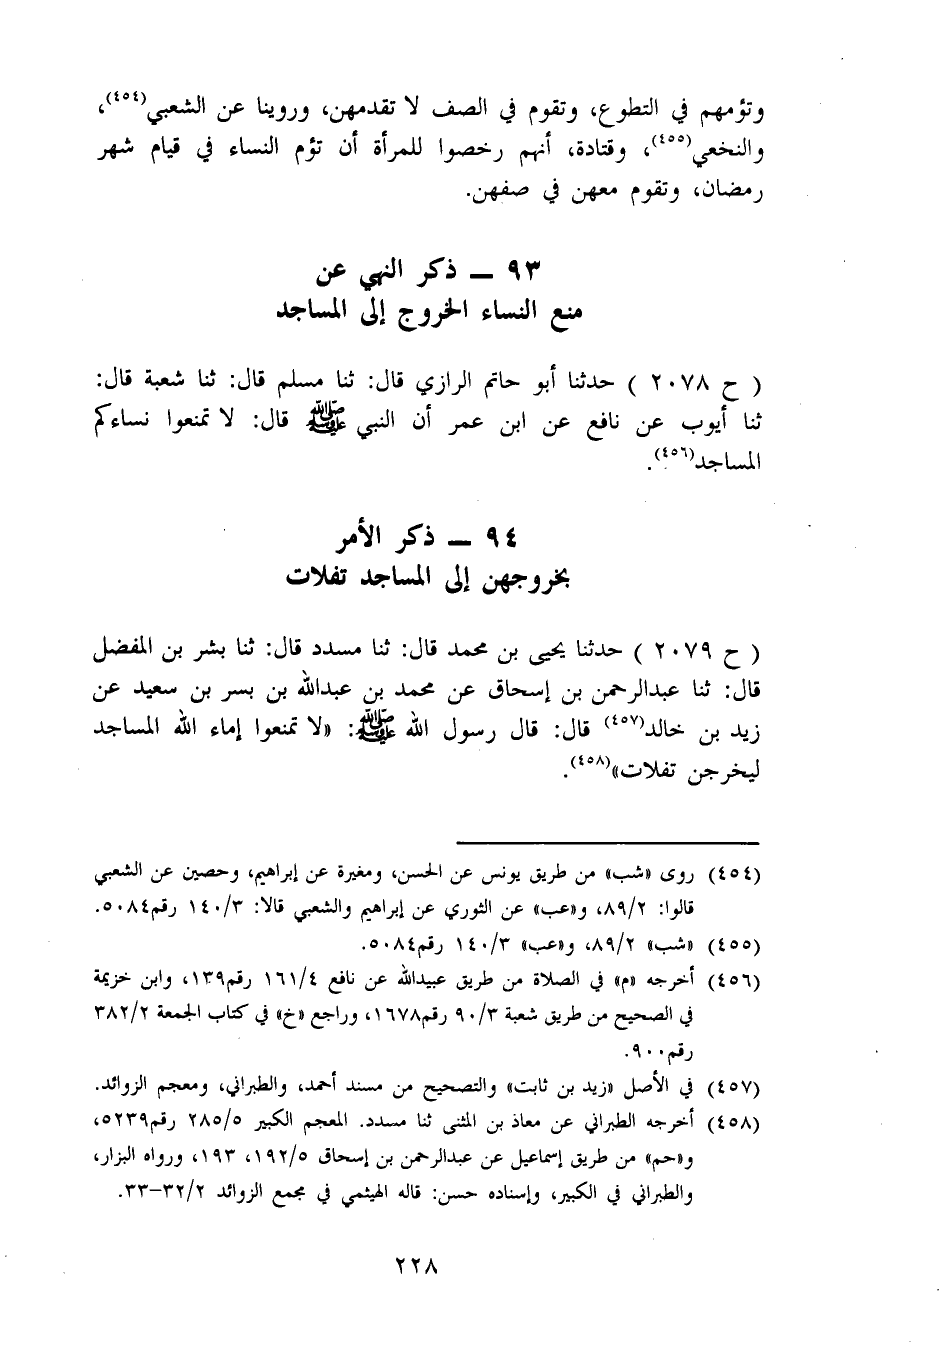 وتؤمهم في التطوع، وتقوم في الصف لا تقدمهن، وروينا عن الشعبي(٤٥٤)،
والنخعي(٤٥٥)، وقتادة، أنهم رخصوا للمرأة أن تؤم النساء في قيام شهر
رمضان، وتقوم معهن في صفهن.
٩٣ ــ ذكر النهي عن
منع النساء الخروج إلى المساجد
( ح ٢٠٧٨ ) حدثنا أبو حاتم الرازي قال: ثنا مسلم قال: ثنا شعبة قال:
ثنا أيوب عن نافع عن ابن عمر أن النبي ﷺ قال: لا تمنعوا نساءكم
المساجد(٤٥٦).
٩٤ ــ ذكر الأمر
بخروجهن إلى المساجد تفلات
( ح ٢٠٧٩ ) حدثنا يحيى بن محمد قال: ثنا مسدد قال: ثنا بشر بن المفضل
قال: ثنا عبدالرحمن بن إسحاق عن محمد بن عبدالله بن بسر بن سعيد عن
زيد بن خالد(٤٥٧) قال: قال رسول الله ﷺ: «لا تمنعوا إماء الله المساجد
ليخرجن تفلات»(٤٥٨).
(٤٥٤) روى «شب» من طريق يونس عن الحسن، ومغيرة عن إبراهيم، وحصين عن الشعبي
قالوا: ٨٩/٢، و«عب» عن الثوري عن إبراهيم والشعبي قالا: ١٤٠/٣ رقم٥٠٨٤.
(٤٥٥) «شب» ٨٩/٢، و«عب» ١٤٠/٣ رقم٥٠٨٤.
(٤٥٦) أخرجه «م» في الصلاة من طريق عبيدالله عن نافع ١٦١/٤ رقم١٣٩، وابن خزيمة
في الصحيح من طريق شعبة ٩٠/٣ رقم١٦٧٨، وراجع «خ» في كتاب الجمعة ٣٨٢/٢
رقم٩٠٠.
(٤٥٧) في الأصل «زيد بن ثابت» والتصحيح من مسند أحمد، والطبراني، ومعجم الزوائد.
(٤٥٨) أخرجه الطبراني عن معاذ بن المثنى ثنا مسدد. المعجم الكبير ٢٨٥/٥ رقم٥٢٣٩،
و«حم» من طريق إسماعيل عن عبدالرحمن بن إسحاق ١٩٢/٥، ١٩٣، ورواه البزار،
والطبراني في الكبير، وإسناده حسن: قاله الهيثمي في مجمع الزوائد ٣٢/٢–٣٣.
٢٢٨